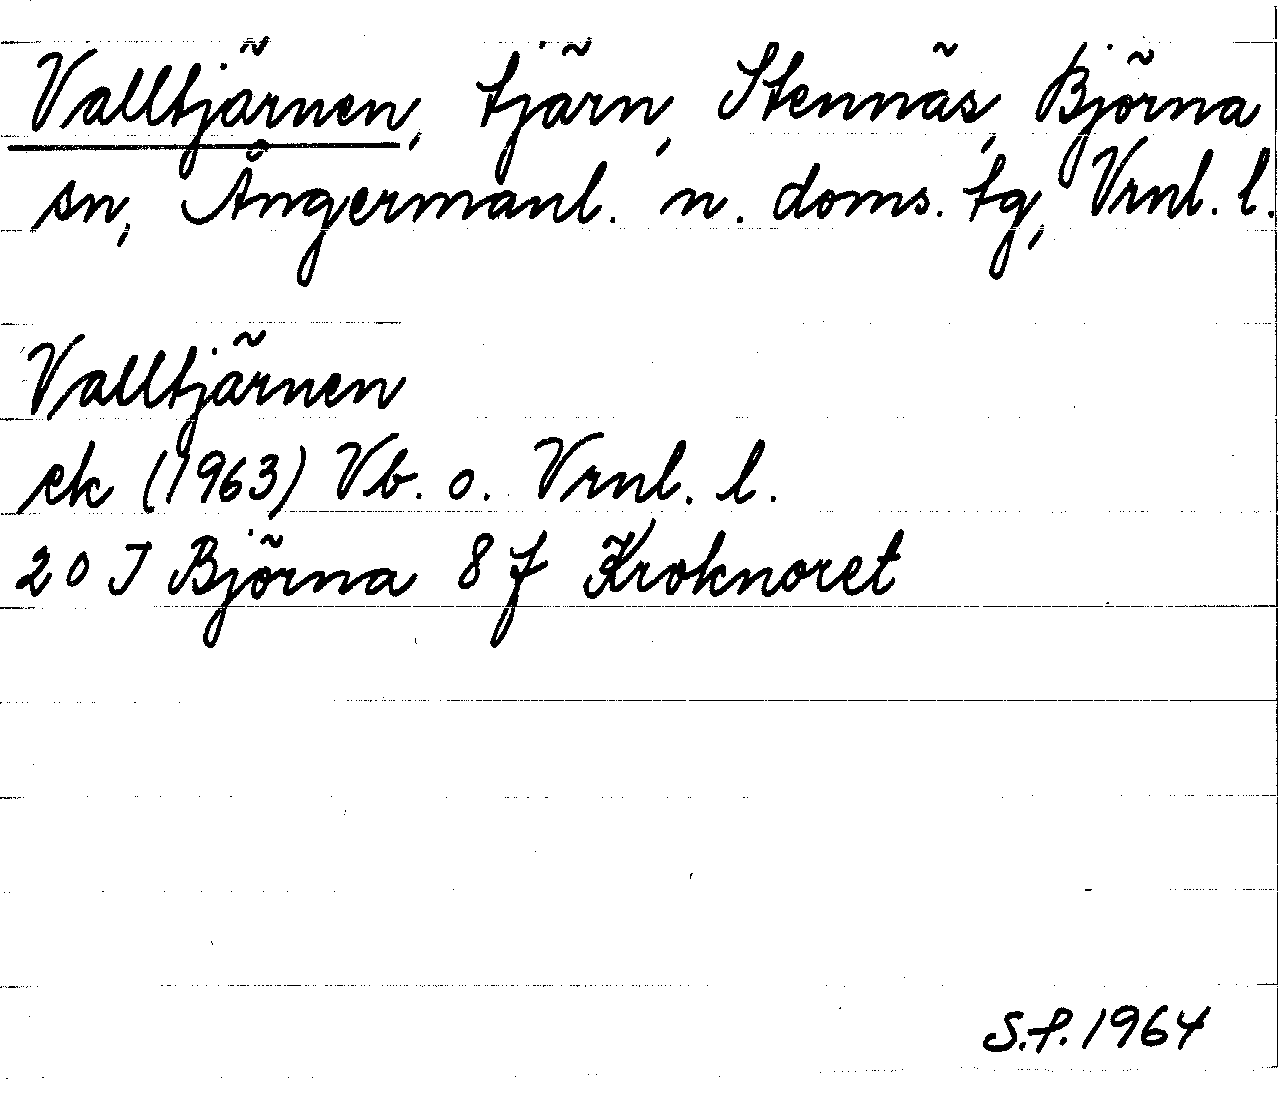 Valltjärnen, tjärn, Stennäs, Björna
sn, Ångermanl. n. doms. tg, Vrnl. l.
Valltjärnen
ek (1963) Vb. o. Vrnl. l.
20 J Björna 8 f Kroknoret
S.P. 1964